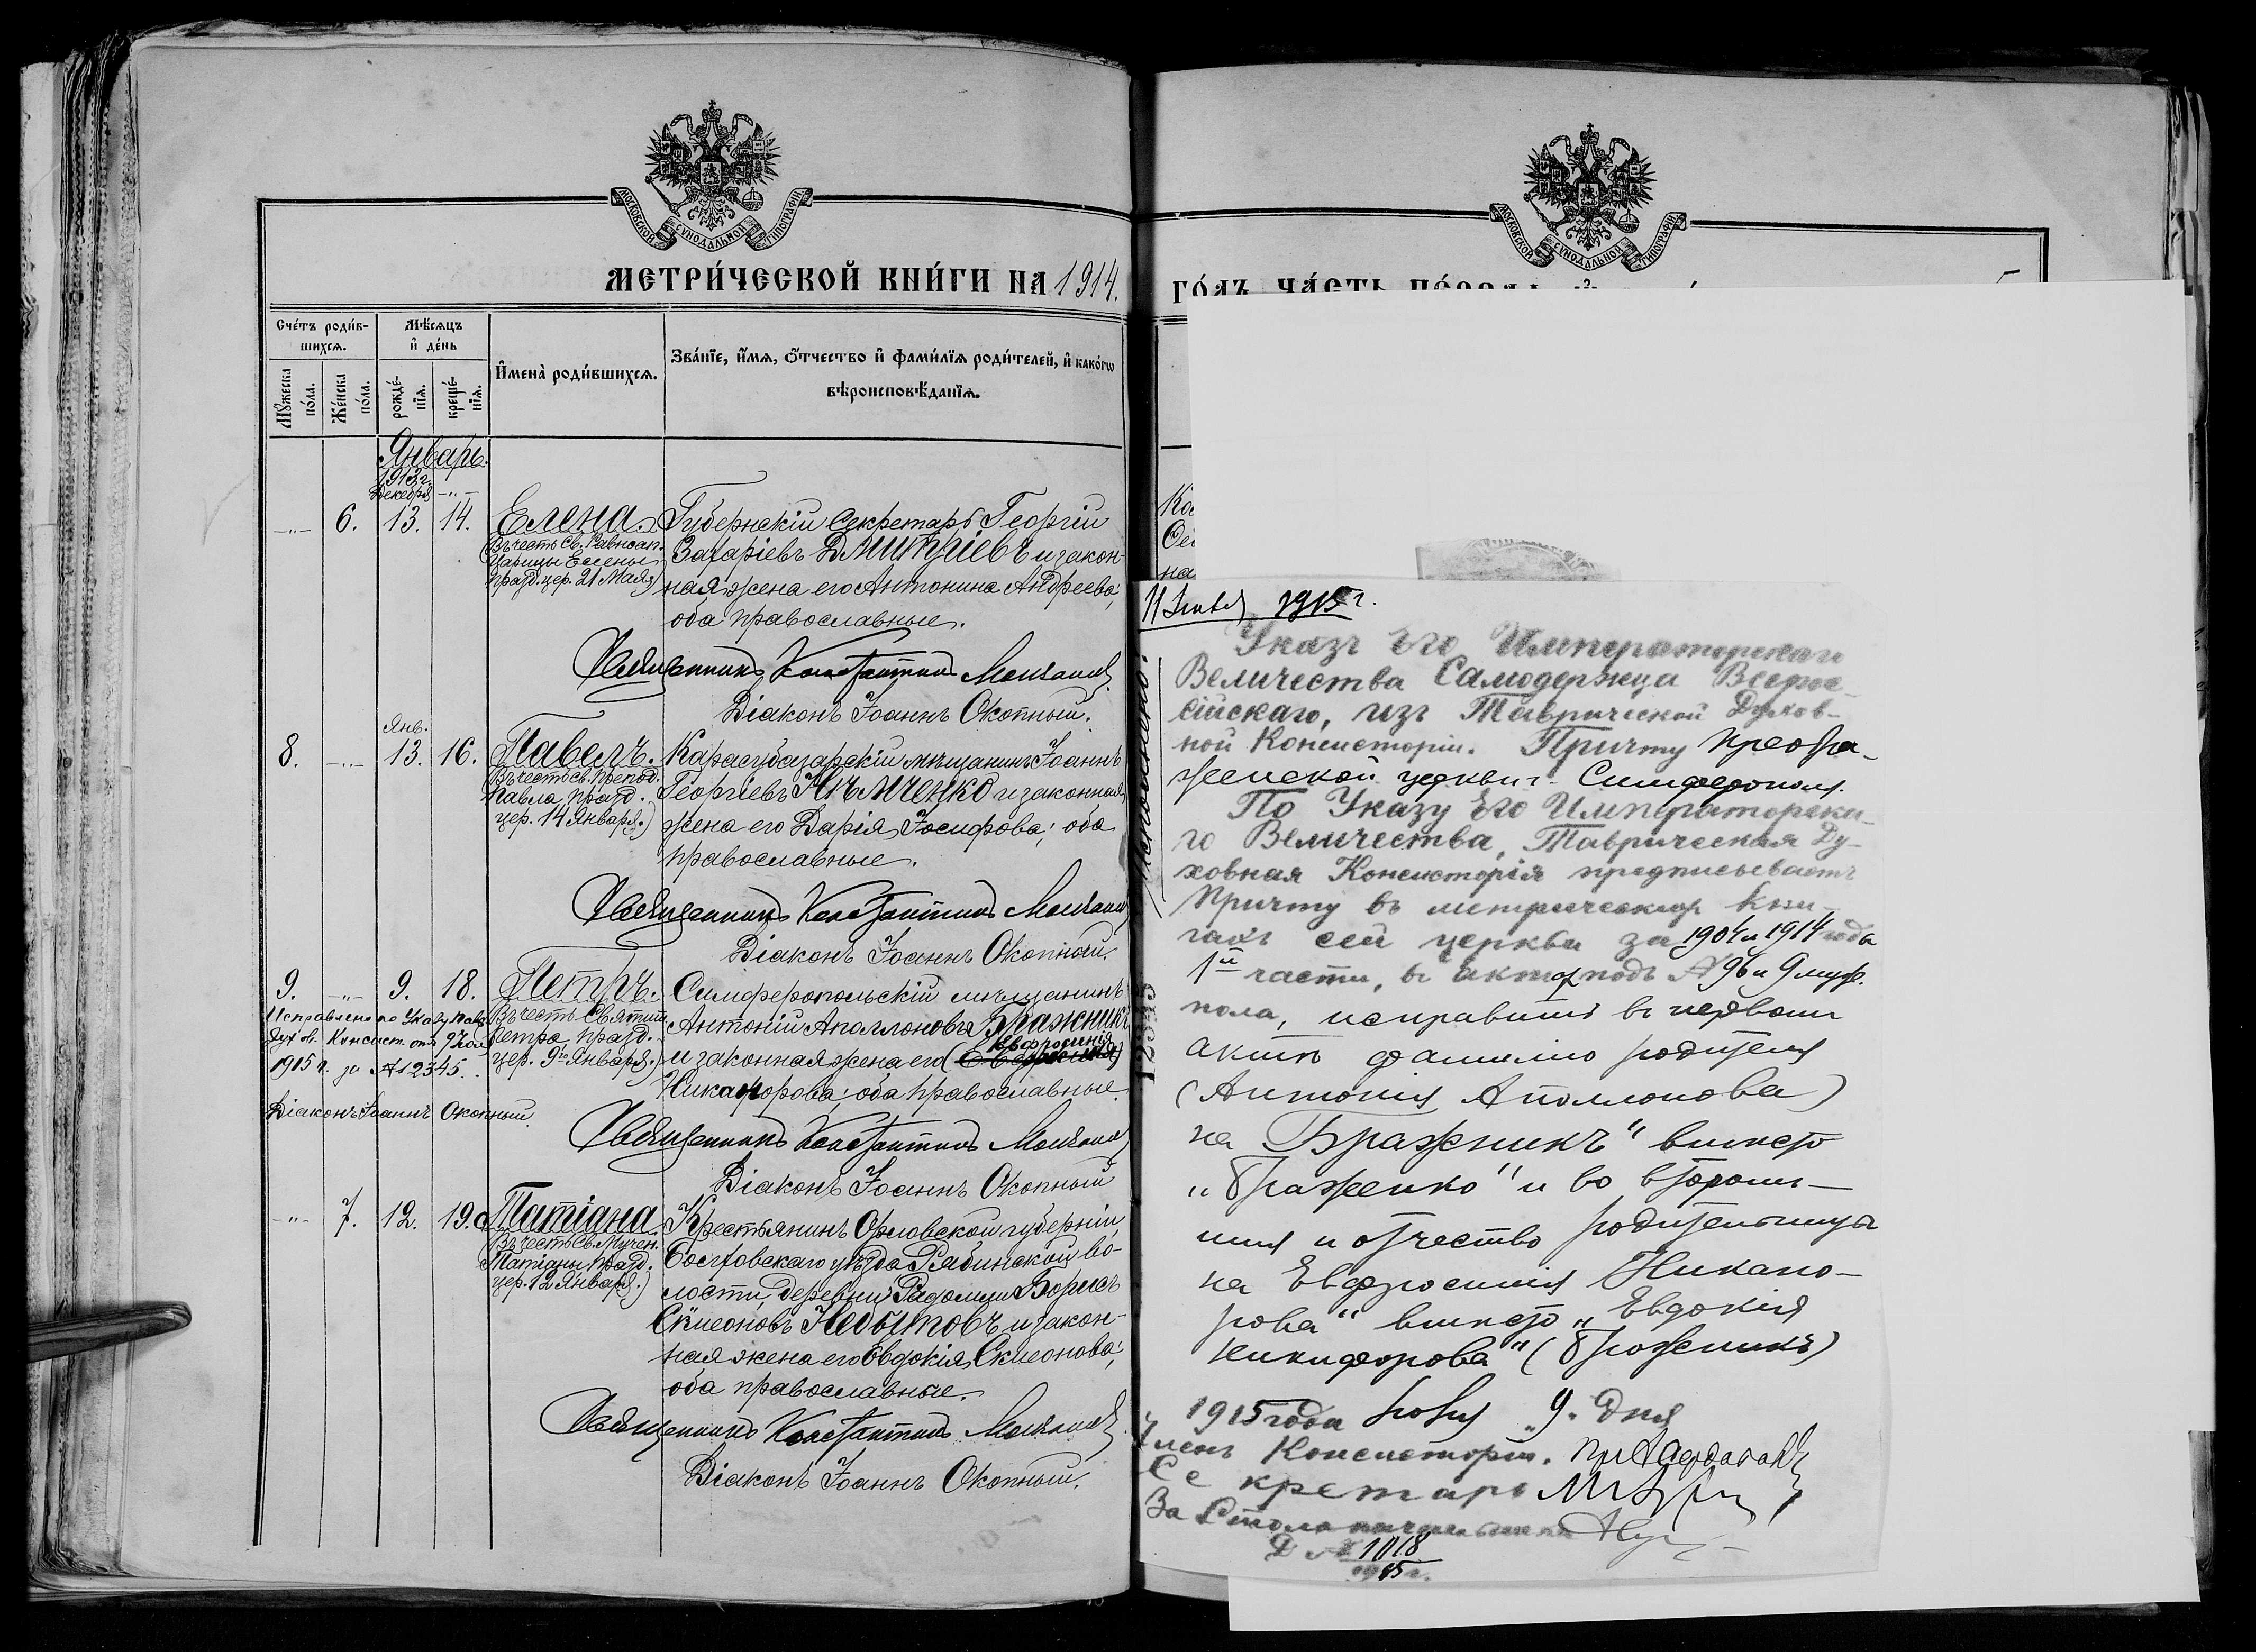 МОСКОВСКОЙ СѴНОДАЛЬНОЙ ТИПОГРАФІИ
МЕТРИ́ЧЕСКОЙ КНИ́ГИ НА 1914.
Сче́тъ роди́в-
шихсѧ.
Мꙋ́жеска по́ла.
Же́нска по́ла.
Мѣ́сѧцъ
и҆ де́нь
рожде́-
нїѧ.
креще́-
нїѧ.
И҆мена̀ роди́вшихсѧ.
Зва́нїе, и҆́мѧ, ѻ҆́тчество и҆ фами́лїѧ роди́телей, и҆ како́гѡ
вѣроисповѣ́данїѧ.
Январь.
1913 г.
Декабря
6. 13. 14. Елена.
(Въ честь Св. Равноап.
Царицы Елены
празд. цер. 21 Мая)
Губернскій Секретарь Георгій
Захаріевъ Дмитріевъ и закон-
ная жена его Антонина Андреева;
оба православные.
Священникъ Константинъ
Діаконъ Іоаннъ Окопный.
Янв.
8. 13. 16. Павелъ.
(Въ честь св. препод.
Павла, празд.
цер. 14 Января.)
Карасубазарскій мѣщанинъ Іоаннъ
Георгіевъ Нѣмченко и законная
жена его Дарія Іосифова; оба
православные.
Священникъ Константинъ
Діаконъ Іоаннъ Окопный.
9. 9. 18. Петръ.
(Въ честь Святит.
Петра, празд.
цер. 9го Января.)
Исправлено по Указу Тавр.
Дух ов. Консист. отъ 9 Іюля
1915 г. за № 12345.
Діаконъ Іоаннъ Окопный.
Симферопольскій мѣщанинъ
Антоній Аполлоновъ Бражникъ
Евфросинія
и законная жена его
Никанорова; оба православные.
Священникъ Константинъ
Діаконъ Іоаннъ Окопный
7. 12. 19. Татіана
(Въ честь Св. Мучен.
Татіаны празд.
цер. 12 Января.)
Крестьянин Орловской губерніи,
уѣзда Рябинской во-
лости, деревни Радомли Борисъ
Сѵмеоновъ Небытовъ и закон-
ная жена его Евдокія Сѵмеонова;
оба православные.
Священникъ Константинъ
Діаконъ Іоаннъ Окопный.
МОСКОВСКОЙ СѴНОДАЛЬНОЙ ТИПОГРАФІИ
ГО́ДЪ ЧА́СТЬ
5
на
11 1915 г.
Исполнено.
12345
Указъ Его Императорскаго
Величества Самодержца Всерос-
сійскаго, изъ Таврической Духов-
ной Консисторіи. Причту Преобра-
женской церкви г. Симферополя.
По Указу Его Императорска-
го Величества, Таврическая Ду-
ховная Консисторія предписываетъ
Причту въ метрическихъ кни-
гахъ сей церкви за 1904 и 1914 года
1й части, въ актахъ подъ № 96 и 9 муж.
пола, исправить въ первомъ
актѣ фамилію родителя
(Антонія Аполлонова)
на „Бражникъ" вмѣсто
„Браженко" и во второмъ—
имя и отчество родительницы
на Евфросинія Никано-
рова" вмѣсто „Евдокія
Никифорова" (Бражникъ)
1915 года Іюля „9" дня
Членъ Консисторіи,
Секретарь
За Столоначальника
Д № 1018
1915 г.